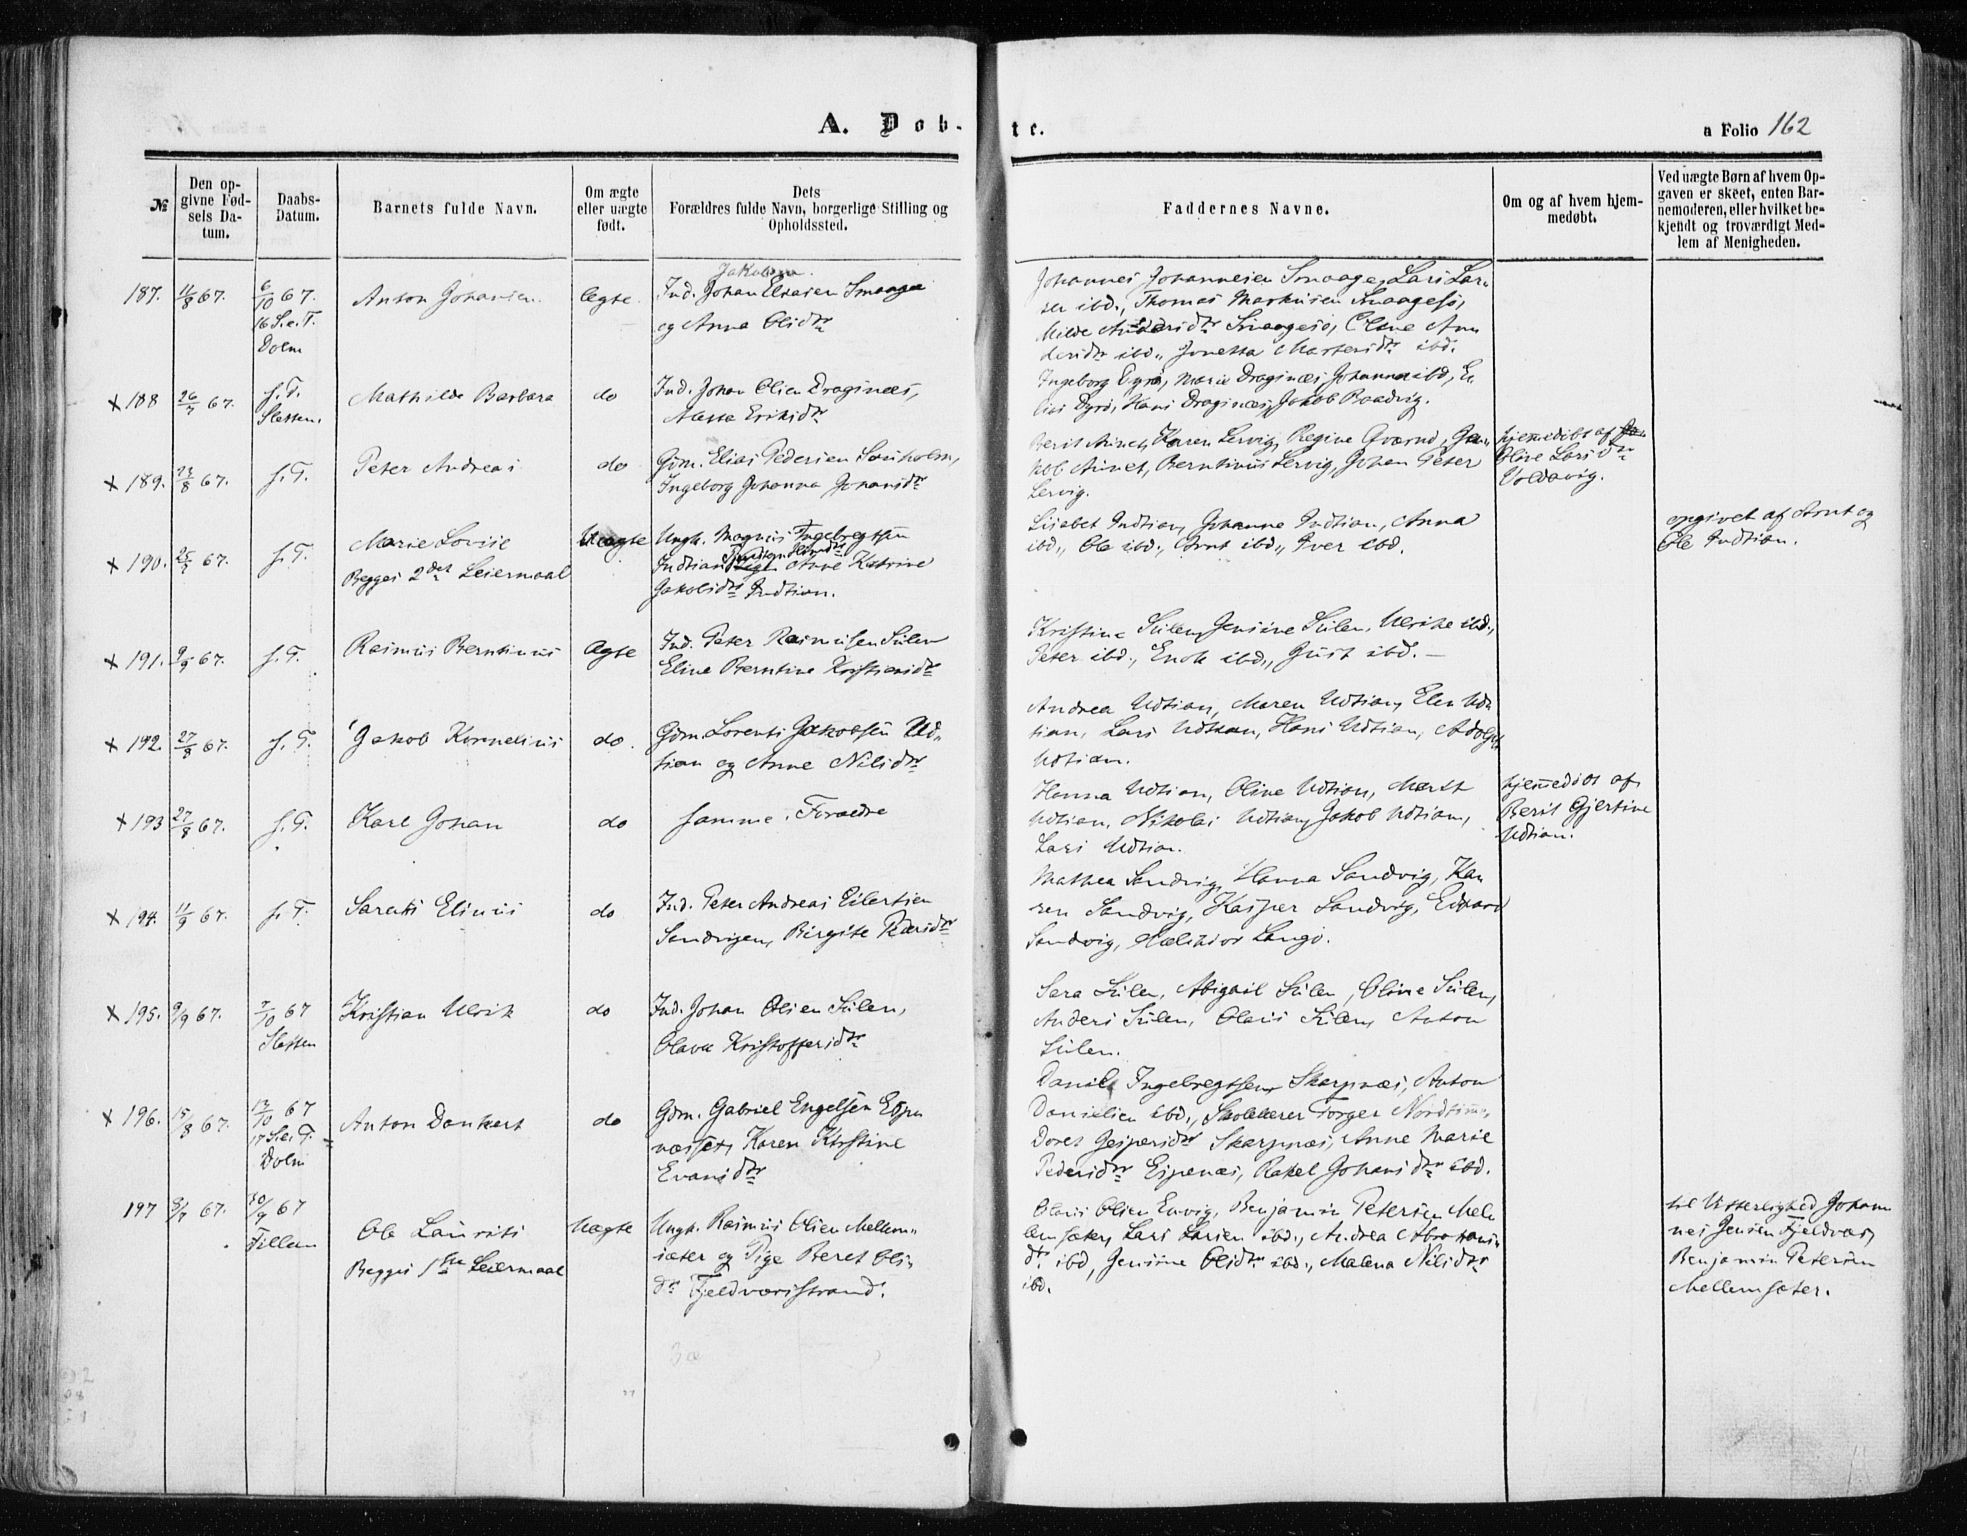 A. Døb-
te.
a Folio 162
№
Den op-
givne Fød-
sels Da-
tum.
Daabs-
Datum.
Barnets fulde Navn.
Om ægte
eller uægte
født.
Dets
Forældres fulde Navn, borgerlige Stilling og
Opholdssted.
Faddernes Navne.
Om og af hvem hjem-
medøbt.
Ved uægte Børn af hvem Op-
gaven er skeet, enten Bar-
nemoderen, eller hvilket be-
kjendt og troværdigt Med-
lem af Menigheden.
187. 11/8 67. 6/10 67. Anton Johansen Ægte
16 S.e.T.
Dolm
Jakobsen
Ind. Johan Eliasen Smaage
og Anna Olsdtr
Johannes Johannesen Smaage, Lars Lar-
sen ibd., Thomas Markusen Smaagesø,
Milde Andersdtr Smaagesø, Oline An-
dersdtr ibd., Jonetta Martesdtr ibd.
x 188 26/7 67. s. T. Mathilde Barbara do
Sletten.
Ind. Johan Olsen Dragsnæs,
Massa Eriksdtr
Ingeborg Dyrø, Marie Dragsnæs, Johanna ibd, E-
lias Dyrø, Hans Dragsnæs, Jakob Raadvig.
x 189. 23/8 67. s. T. Peter Andreas do
Gdm. Elias Pedersen Sauholm,
Ingeborg Johanna Johansdtr
Berit Ausnet, Karen Lervig, Regine Gværnø, Ja-
kob Ausnet, Berntinus Lervig, Johan Peter
Lervig.
hjemmedøbt af
Oline Larsdtr
Voldavig.
x 190. 25/7 67. s. T. Marie Lovise Uægte
Begges 2det Leiermaal
Ungk. Magnus Ingebregtsen
Indtian Anne Katrine
Jakobsdtr Indtian.
Lisabet Indtian, Johanna Indtian, Anna
ibd., Ole ibd., Arnt ibd., Iver ibd.
opgivet af Arnt og
Ole Indtian.
x 191. 9/9 67. s. T. Rasmus Berntinus Ægte
Ind. Peter Rasmusen Sulen
Eline Berntine Kristiansdtr
Kristine Sulen, Jensine Sulen, Ulrike ibd.,
Peter ibd., Enok ibd., Gust ibd. —
x 192. 27/8 67. s. T. Jakob Kornelius do.
Gdm. Lorents Jakobsen Ud-
tian og Anne Nilsdtr
Andrea Udtian, Maren Udtian, Elen Ud-
tian, Lars Udtian, Hans Udtian, Adolf
Udtian.
x 193 27/8 67. s. T. Karl Johan do
samme Forældre
Hanna Udtian, Oline Udtian, Marit
Udtian, Nikolai Udtian, Jakob Udtian,
Lars Udtian.
hjemmedøbt af
Berit Gjertine
Udtian.
x 194. 11/9 67. s. T. Saratis Elinus do
Ind. Peter Andreas Eilertsen
Sandvigen, Birgite Pedersdtr
Mathea Sandvig, Hanna Sandvig, Ka-
ren Sandvig, Kasper Sandvig, Edvard
Sandvig, Melkior Langø.
x 195. 9/9 67. 7/10 67 Kristian Ulrik do
Sletten
Ind. Johan Olsen Sulen,
Olava Kristoffersdtr
Sara Sulen, Abigail Sulen, Oline Sulen,
Anders Sulen, Olaus Sulen, Anton
Sulen.
x 196. 15/8 67. 13/10 67 Anton Dankert do
17 S.e.T.
Dolm
Gdm. Gabriel Engelsen Espe-
næsset, Karen Kristine
Evansdtr
Daniel Ingebregtsen Skarpnæs, Anton
Danielsen ibd., Skolelærer Torger
Doret Jespersdtr Skarpnæs, Anne Marie
Pedersdtr Espenæs, Rakel Johansdtr ibd.
197 3/7 67. 30/9 67 Ole Laurits Uægte
Fillan
Begges 1ste Leiermaal
Ungk. Rasmus Olsen Mellem-
sæter og Pige Beret Ols-
dtr Fjeldværsstrand.
Olaus Olsen Envig, Benjamin Petersen Mel-
lemsæter, Lars Larsen ibd., Andrea Abrahams-
dtr ibd, Jensine Olsdtr ibd., Malena Nilsdtr
ibd.
til Vitterlighed Johan-
nes Jensen Fjeldvær,
Benjamin Petersen
Mellemsæter.